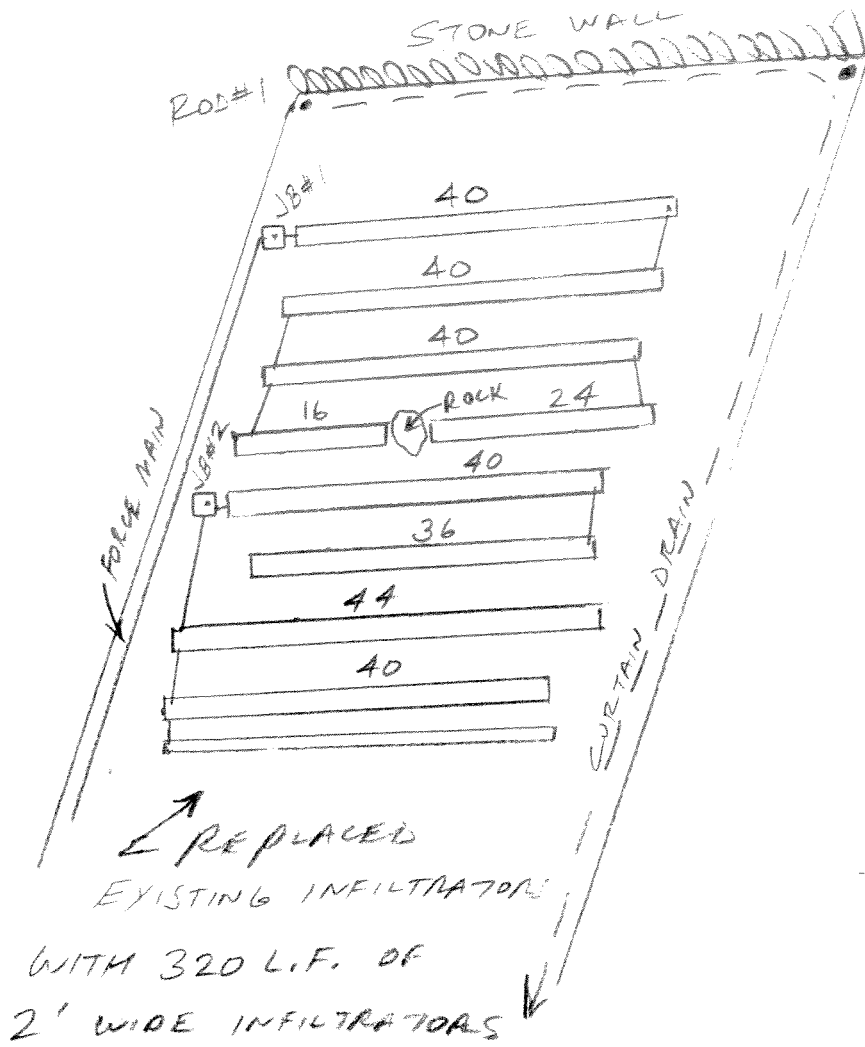 STONE WALL
ROD#1
JB#1
40
40
40
16
ROCK
24
JB#2
40
36
44
40
FORCE MAIN
CURTAIN DRAIN
REPLACED
EXISTING INFILTRATORS
WITH 320 L.F. OF
2' WIDE INFILTRATORS